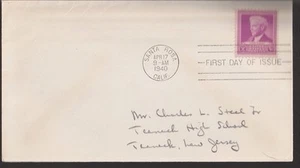 SANTA ROSA
APR 17
9-AM
1940
CALIF.
FIRST DAY OF ISSUE
Mr. Charles L. Steel Jr
Teaneck High School
Teaneck, New Jersey